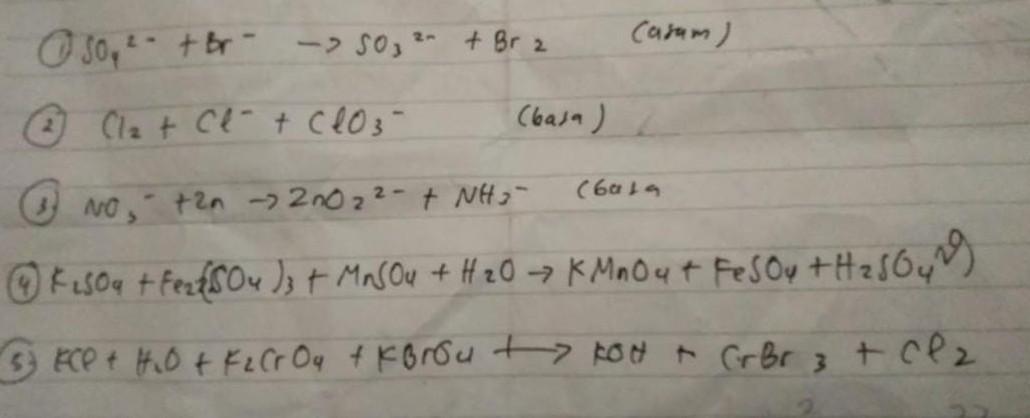 ① SO₄²⁻ + Br⁻ -> SO₃²⁻ + Br₂ (asam)
② Cl₂ + Cl⁻ + ClO₃⁻ (basa)
③ NO₃⁻ + Zn -> ZnO₂²⁻ + NH₃⁻ (basa
④ K₂SO₄ + Fe₂(SO₄)₃ + MnSO₄ + H₂O → KMnO₄ + FeSO₄ + H₂SO₄
⑤ KCl + H₂O + K₂CrO₄ + KBrO₄ → KOH + CrBr₃ + Cl₂